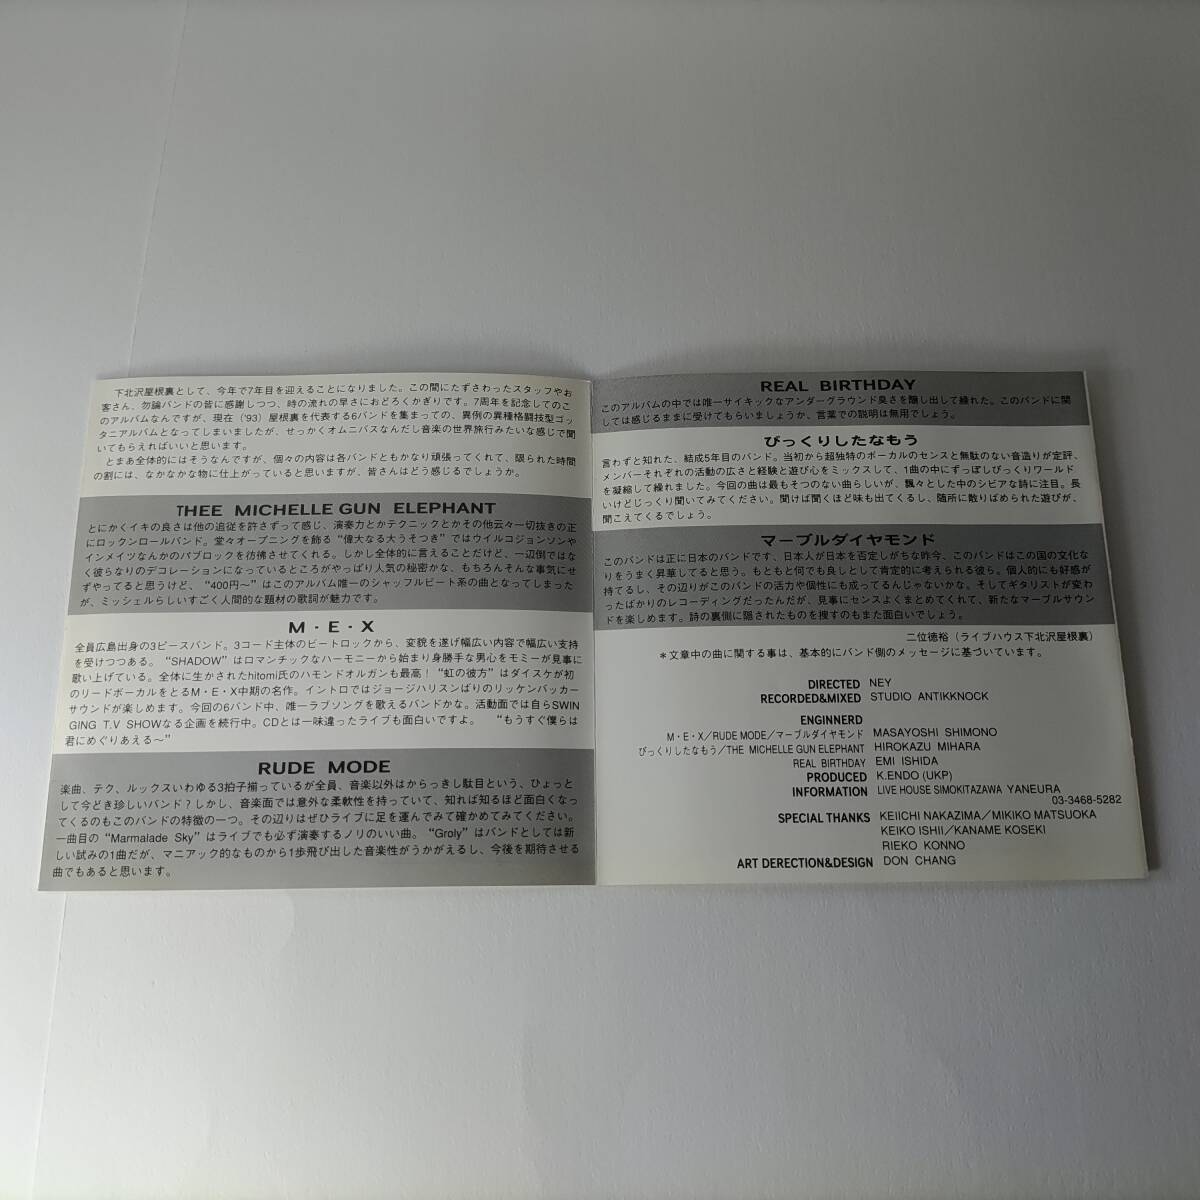 下北沢屋根裏として、今年で7年目を迎えることになりました。この間にたずさわったスタッフやお
客さん、勿論バンドの皆に感謝しつつ、時の流れの早さにおどろくかぎりです。7周年を記念してのこ
のアルバムなんですが、現在('93)屋根裏を代表する6バンドを集まっての、異例の異種格闘技型ゴッ
タニアルバムとなってしまいましたが、せっかくオムニバスなんだし音楽の世界旅行みたいな感じで聞
いてもらえればいいと思います。
とまあ全体的にはそうなんですが、個々の内容は各バンドともかなり頑張ってくれて、限られた時間
の割には、なかなかな物に仕上がっていると思いますが、皆さんはどう感じるでしょうか。
THEE MICHELLE GUN ELEPHANT
とにかくイキの良さは他の追従を許さずって感じ、演奏力とかテクニックとかその他云々一切抜きの正
にロックンロールバンド。堂々オープニングを飾る“偉大なる大うそつき”ではウイルコジョンソンや
インメイツなんかのパブロックを彷彿させてくれる。しかし全体的に言えることだけど、一辺倒ではな
く彼らなりのデコレーションになっているところがやっぱり人気の秘密かな、もちろんそんな事気にせ
ずやってると思うけど、“400円〜”はこのアルバム唯一のシャッフルビート系の曲となってしまった
が、ミッシェルらしいすごく人間的な題材の歌詞が魅力です。
M・E・X
全員広島出身の3ピースバンド。3コード主体のビートロックから、変貌を遂げ幅広い内容で幅広い支持
を受けつつある。“SHADOW”はロマンチックなハーモニーから始まり身勝手な男心をモミーが見事に
歌い上げている。全体に生かされたhitomi氏のハモンドオルガンも最高！“虹の彼方”はダイスケが初
のリードボーカルをとるM・E・X中期の名作。イントロではジョージハリスンばりのリッケンバッカー
サウンドが楽しめます。今回の6バンド中、唯一ラブソングを歌えるバンドかな。活動面では自らSWIN
GING T.V SHOWなる企画を続行中。CDとは一味違ったライブも面白いですよ。　“もうすぐ僕らは
君にめぐりあえる〜”
RUDE MODE
楽曲、テク、ルックスいわゆる3拍子揃っているが全員、音楽以外はからっきし駄目という、ひょっと
して今どき珍しいバンド？しかし、音楽面では意外な柔軟性を持っていて、知れば知るほど面白くなっ
てくるのもこのバンドの特徴の一つ。その辺りはぜひライブに足を運んでみて確かめてみてください。
一曲目の“Marmalade Sky”はライブでも必ず演奏するノリのいい曲。“Groly”はバンドとしては新
しい試みの1曲だが、マニアック的なものから1歩飛び出した音楽性がうかがえるし、今後を期待させる
曲でもあると思います。
REAL BIRTHDAY
このアルバムの中では唯一サイキックなアンダーグラウンド臭さを醸し出して繰れた。このバンドに関
しては感じるままに受けてもらいましょうか、言葉での説明は無用でしょう。
びっくりしたなもう
言わずと知れた、結成5年目のバンド。当初から超独特のボーカルのセンスと無駄のない音造りが定評、
メンバーそれぞれの活動の広さと経験と遊び心をミックスして、1曲の中にずっぽしびっくりワールド
を凝縮して繰れました。今回の曲は最もそつのない曲らしいが、飄々とした中のシビアな詩に注目。長
いけどじっくり聞いてみてください。聞けば聞くほど味も出てくるし、随所に散りばめられた遊びが、
聞こえてくるでしょう。
マーブルダイヤモンド
このバンドは正に日本のバンドです、日本人が日本を否定しがちな昨今、このバンドはこの国の文化な
りをうまく昇華してると思う。もともと何でも良しとして肯定的に考えられる彼ら。個人的にも好感が
持てるし、その辺りがこのバンドの活力や個性にも成ってるんじゃないかな。そしてギタリストが変わ
ったばかりのレコーディングだったんだが、見事にセンスよくまとめてくれて、新たなマーブルサウン
ドを楽しめます。詩の裏側に隠されたものを捜すのもまた面白いでしょう。
二位徳裕（ライブハウス下北沢屋根裏）
＊文章中の曲に関する事は、基本的にバンド側のメッセージに基づいています。
DIRECTED NEY
RECORDED&MIXED STUDIO ANTIKKNOCK
ENGINNERD
M・E・X／RUDE MODE／マーブルダイヤモンド MASAYOSHI SHIMONO
びっくりしたなもう／THE MICHELLE GUN ELEPHANT HIROKAZU MIHARA
REAL BIRTHDAY EMI ISHIDA
PRODUCED K.ENDO (UKP)
INFORMATION LIVE HOUSE SIMOKITAZAWA YANEURA
03-3468-5282
SPECIAL THANKS KEIICHI NAKAZIMA／MIKIKO MATSUOKA
KEIKO ISHII／KANAME KOSEKI
RIEKO KONNO
ART DERECTION&DESIGN DON CHANG